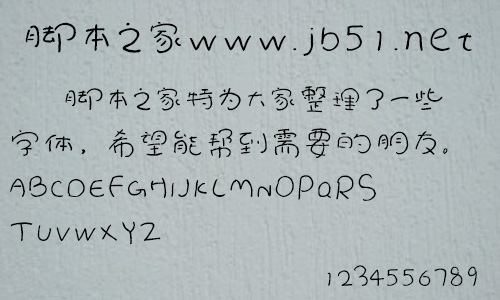 脚本之家www.jb51.net
脚本之家特为大家整理了一些
字体，希望能帮到需要的朋友。
ABCDEFGHIJKLMNOPQRS
TUVWXYZ
1234556789